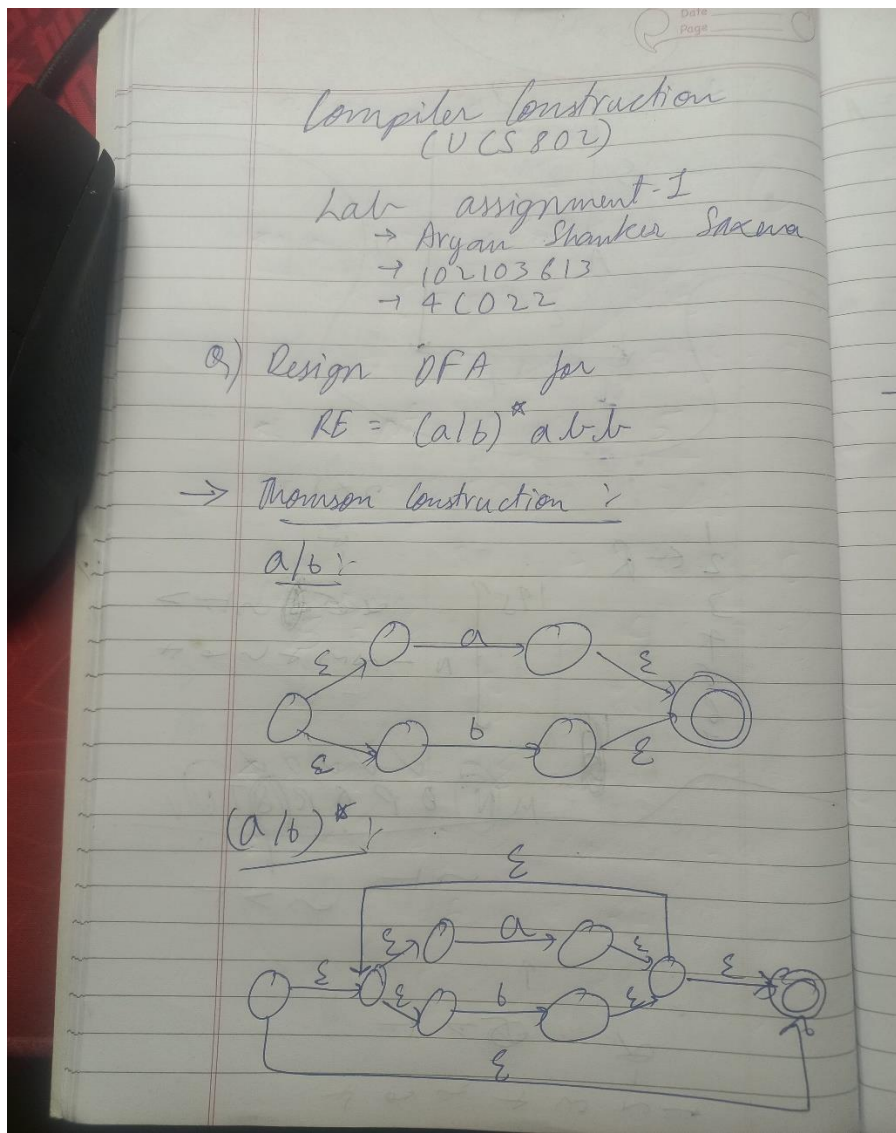 Date
Page
Compiler Construction
(UCS802)
Lab assignment-I
→ Aryan Shanker Saxena
→ 102103613
→ 4CO22
Q) Design DFA for
RE = (a/b)* abb
→ Thomson Construction :-
a/b :-
ε a ε
ε b ε
(a/b)* :-
ε
ε ε a ε ε
ε b ε
ε